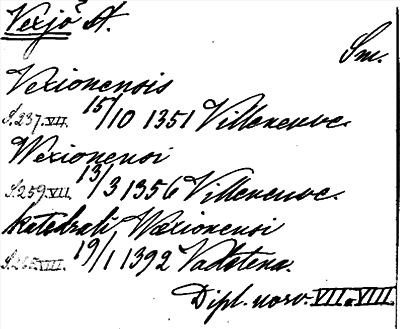 Vexjö St.
Sm.
Vexionensis
S.237.VII. 15/10 1351 Villeneuve.
Wexionensi
S.259.VII. 13/3 1356 Villeneuve.
katedralk. Wexionensi
19/1 1392 Vadstena.
Dipl. norv. VII o. VIII.